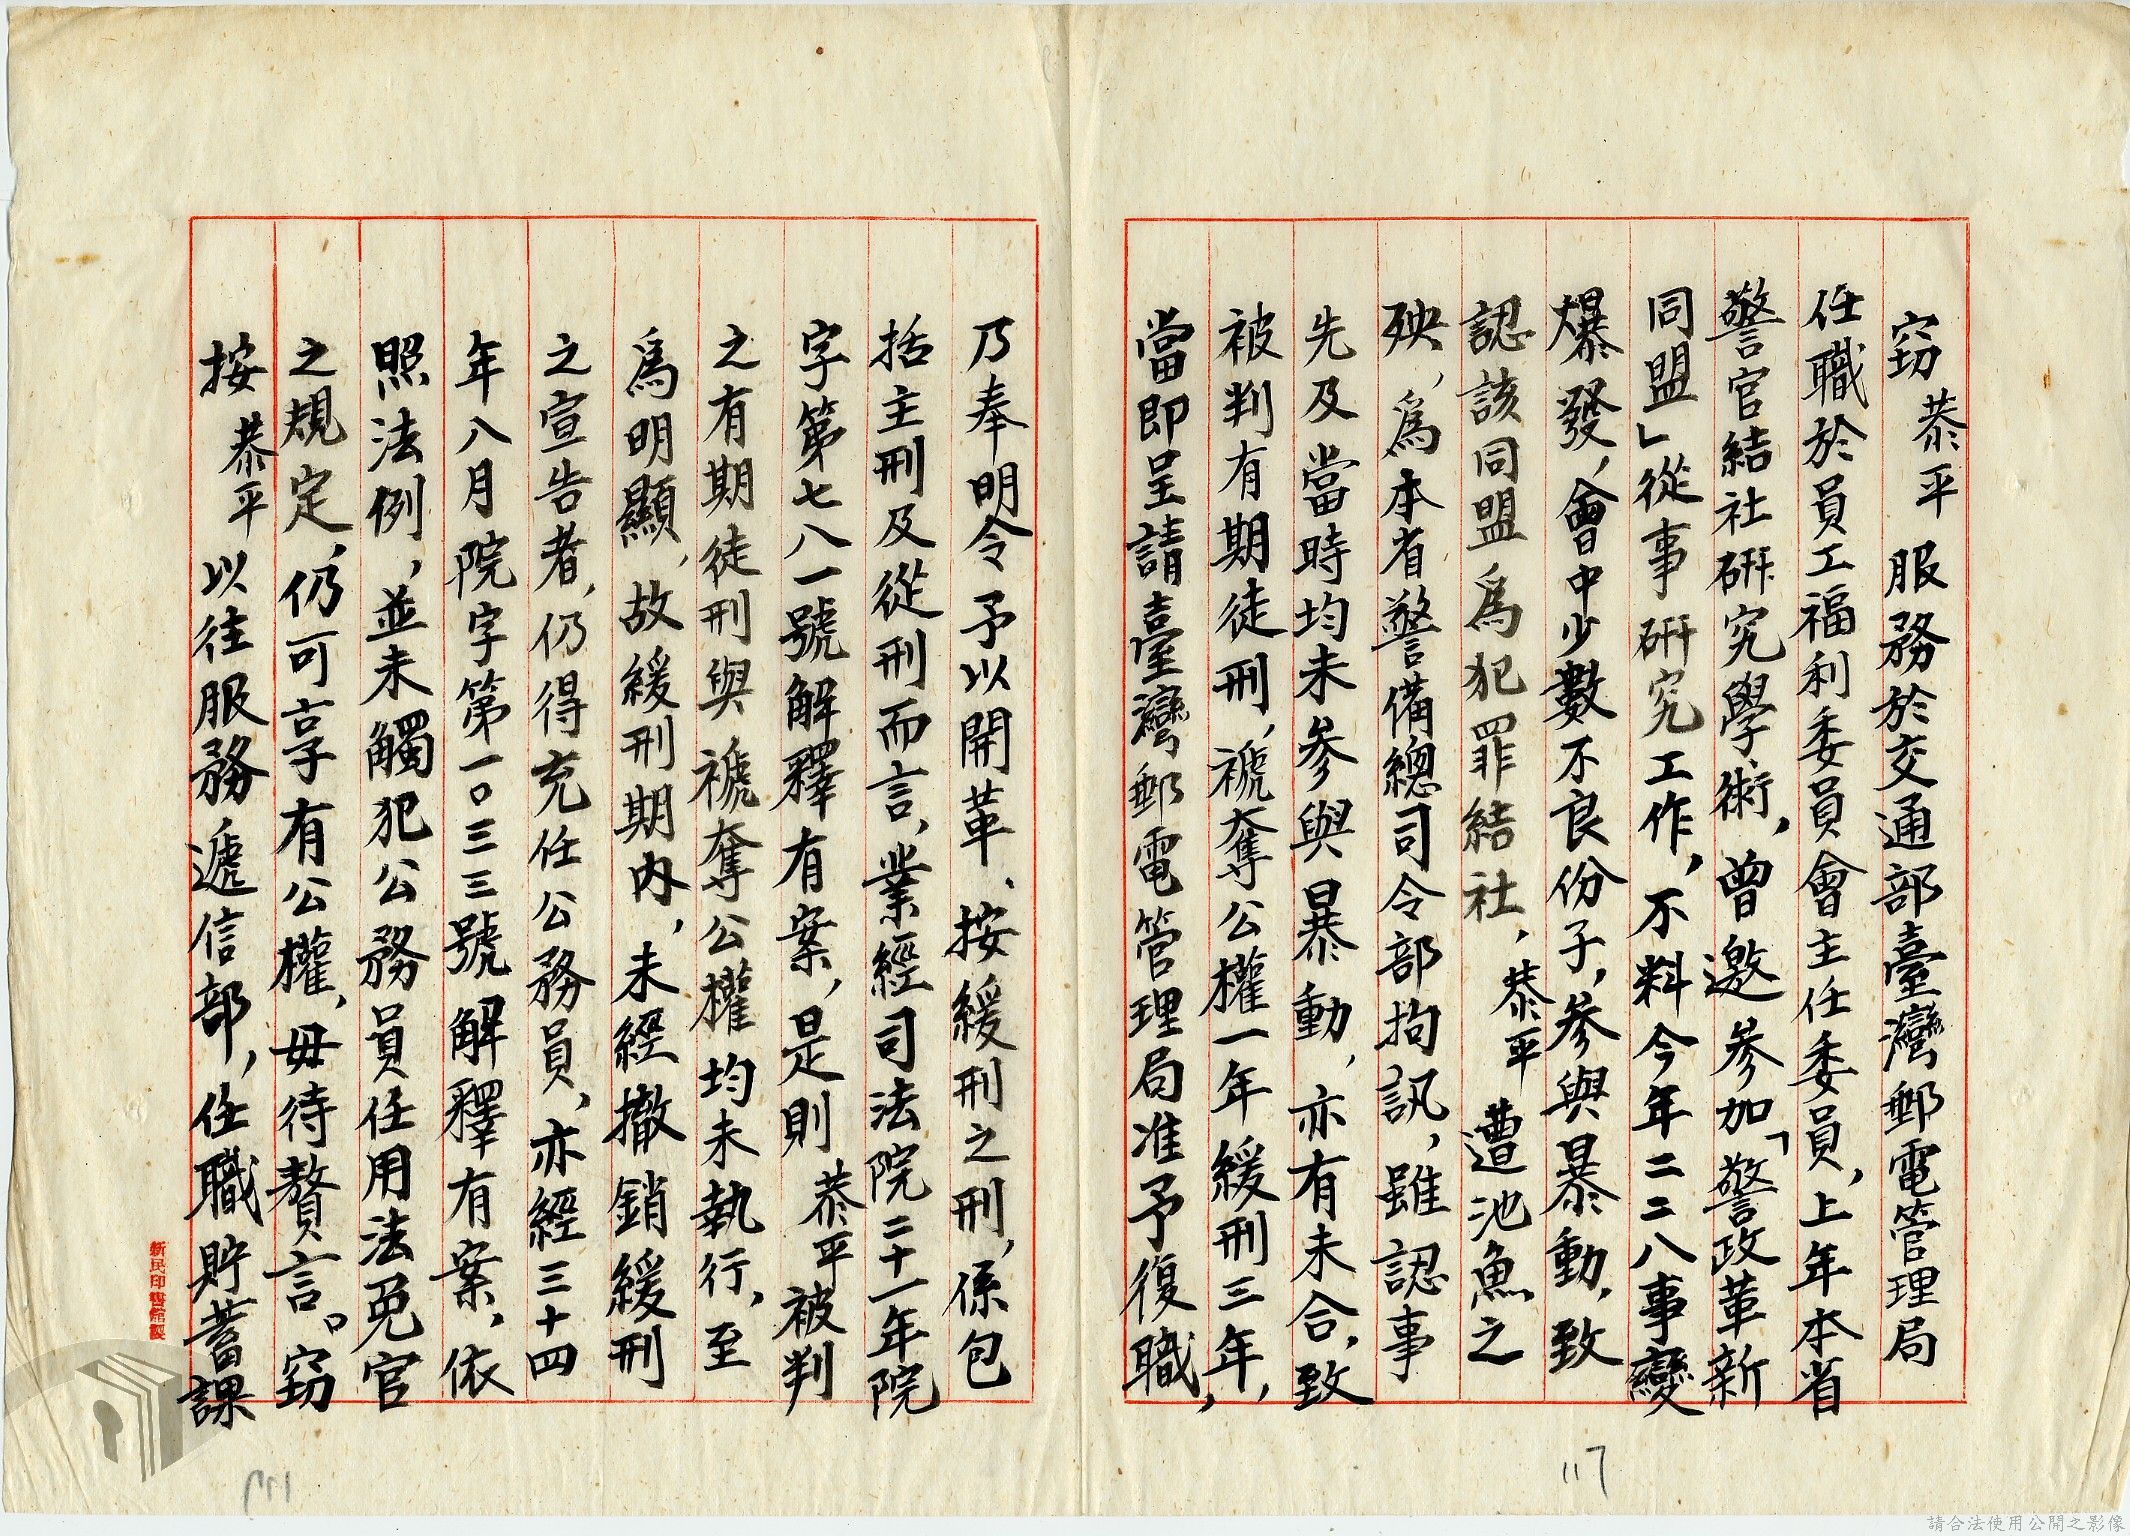 竊恭平服務於交通部臺灣郵電管理局
任職於員工福利委員會主任委員,上年本省
警官結社研究學術,曾邀參加「警政革新
同盟」從事研究工作,不料今年二二八事變
爆發,會中少數不良份子,參與暴動,致
認該同盟爲犯罪結社,恭平遭池魚之
殃,爲本省警備總司令部拘訊,雖認事
先及當時均未參與暴動,亦有未合,致
被判有期徒刑,褫奪公權一年緩刑三年,
當即呈請臺灣郵電管理局准予復職,
乃奉明令予以開革、按緩刑之刑,係包
括主刑及從刑而言,業經司法院二十一年院
字第七八一號解釋有案,是則恭平被判
之有期徒刑與褫奪公權均未執行,至
爲明顯,故緩刑期內,未經撤銷緩刑
之宣告者,仍得充任公務員,亦經三十四
年八月院字第一〇三三號解釋有案,依
照法例,並未觸犯公務員任用法免官
之規定,仍可享有公權,毋待贅言。竊
按恭平以往服務遞信部,任職貯蓄課
新民印書館製
117
請合法使用公開之影像